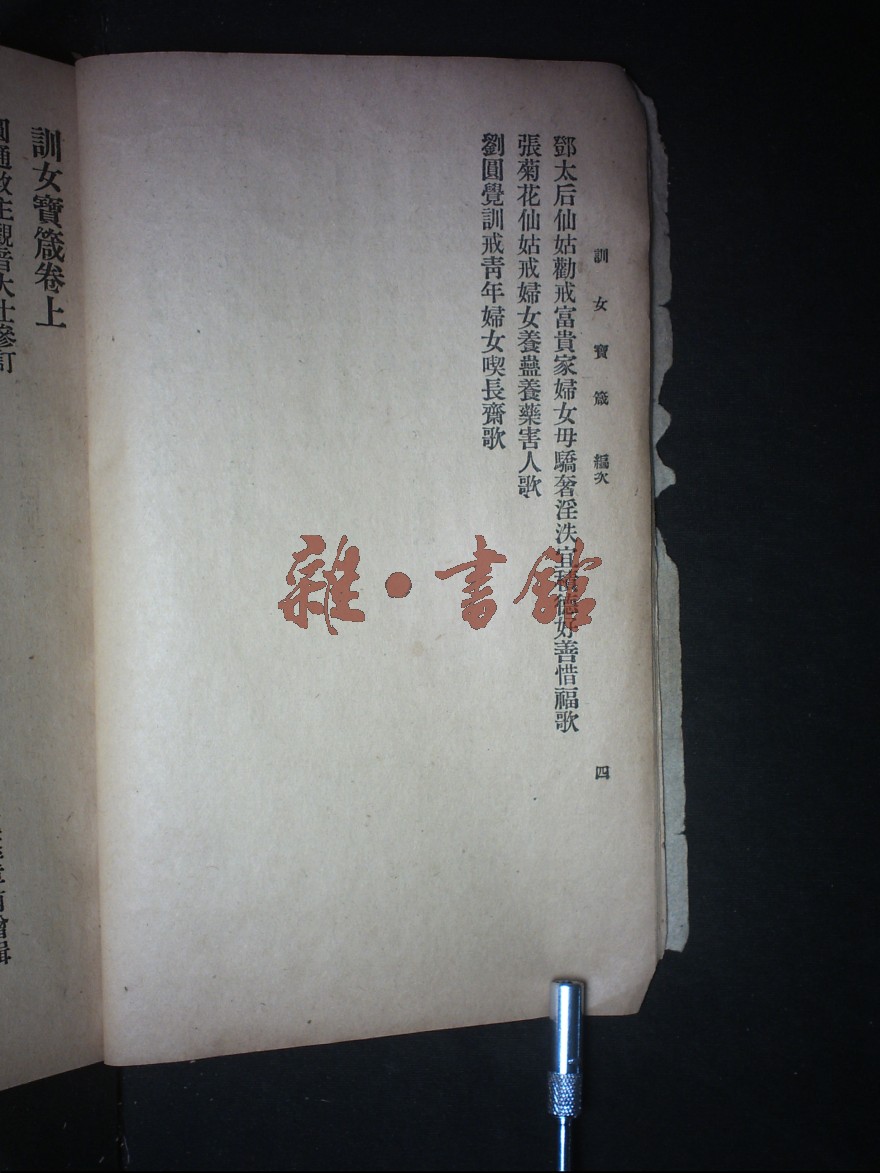 訓女寶箴 編次 四
鄧太后仙姑勸戒富貴家婦女毋驕奢淫泆宜積德好善惜福歌
張菊花仙姑戒婦女養蠱養藥害人歌
劉圓覺訓戒青年婦女喫長齋歌
雜·書館
訓女寶箴卷上
圓通教主觀音大士參訂
增輯